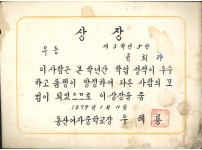 상장
우등 제3학년5반
이 사람은 본 학년간 학업 성적이 우수
하고 품행이 방정하여 다른 사람의 모
범이 되었으므로 이 상장을 줌
1979년 1월 11일
동산여자중학교장